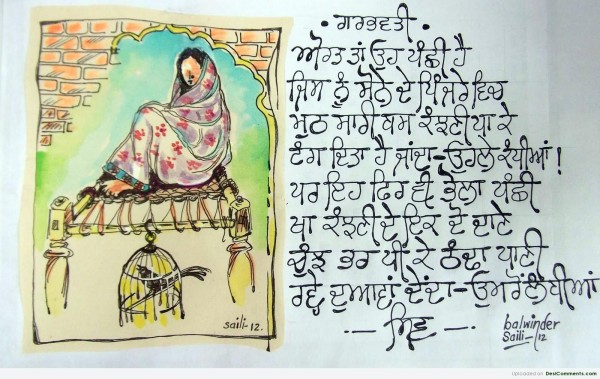 · ਗਰਭਵਤੀ ·
ਔਰਤ ਤਾਂ ਉਹ ਪੰਛੀ ਹੈ
ਜਿਸ ਨੂੰ ਸੋਨੇ ਦੇ ਪਿੰਜਰੇ ਵਿਚ
ਮੁਠ ਸਾਰੀ ਬਸ ਕੰਙਣੀ ਪਾ ਕੇ
ਟੰਗ ਦਿਤਾ ਹੈ ਜਾਂਦਾ-ਉਹਲੇ ਕੰਧੀਆਂ !
ਪਰ ਇਹ ਫਿਰ ਵੀ ਭੋਲਾ ਪੰਛੀ
ਖਾ ਕੰਙਣੀ ਦੇ ਇਕ ਦੋ ਦਾਣੇ
ਚੁੰਝ ਭਰ ਪੀ ਕੇ ਠੰਢਾ ਪਾਣੀ
ਰਹੇ ਦੁਆਵਾਂ ਦੇਂਦਾ-ਉਮਰਾਂ ਲੰਬੀਆਂ
-- ਸ਼ਿਵ --.
balwinder
Saili-/12
saili-12.
Uploaded on DesiComments.com